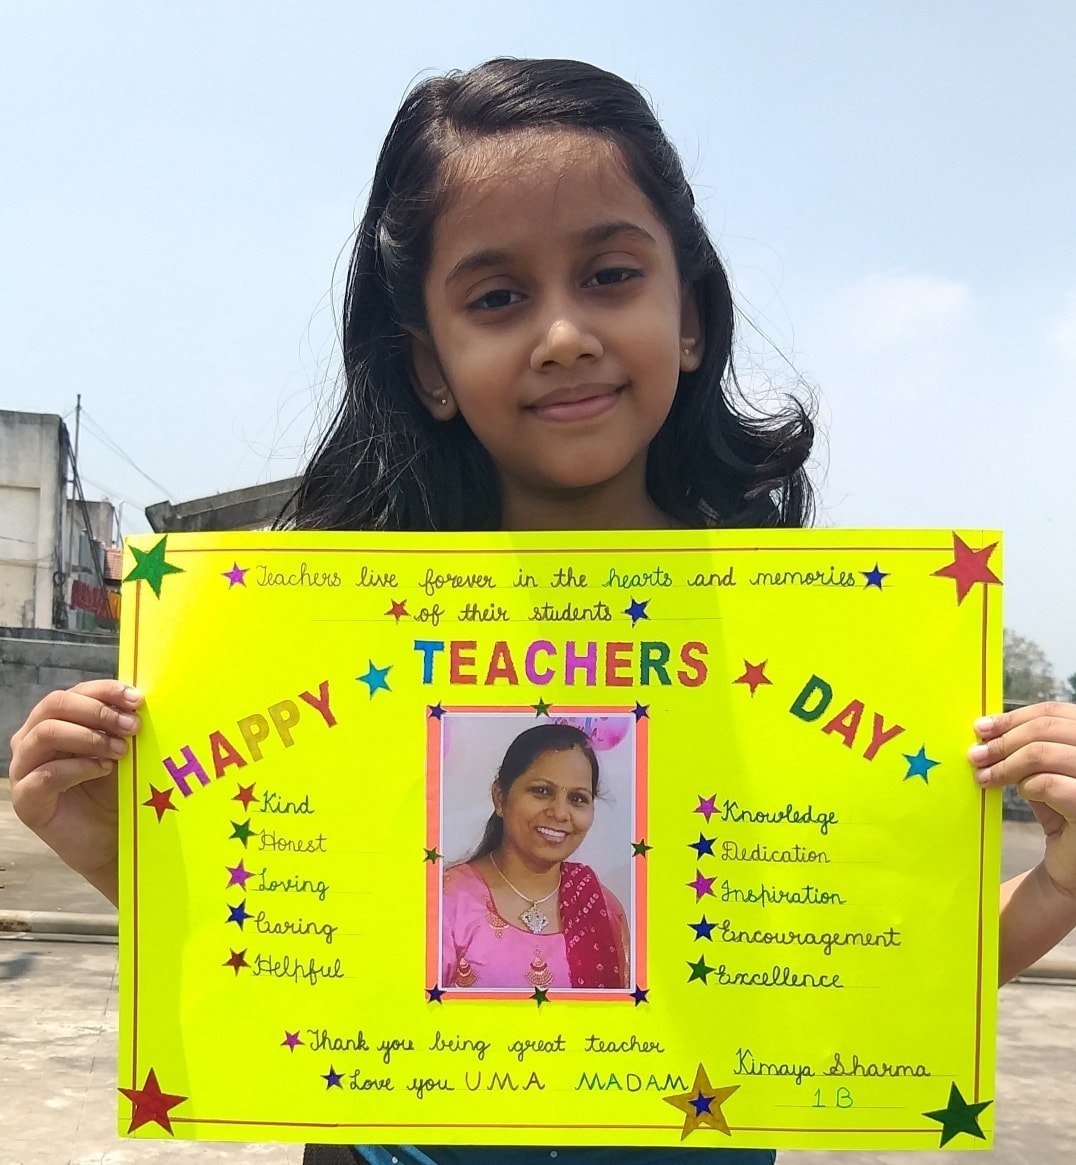 Teachers live forever in the hearts and memories
of their students
HAPPY TEACHERS DAY
Kind
Honest
Loving
Caring
Helpful
Knowledge
Dedication
Inspiration
Encouragement
Excellence
Thank you being great teacher
Love you UMA MADAM
Kimaya Sharma
1 B